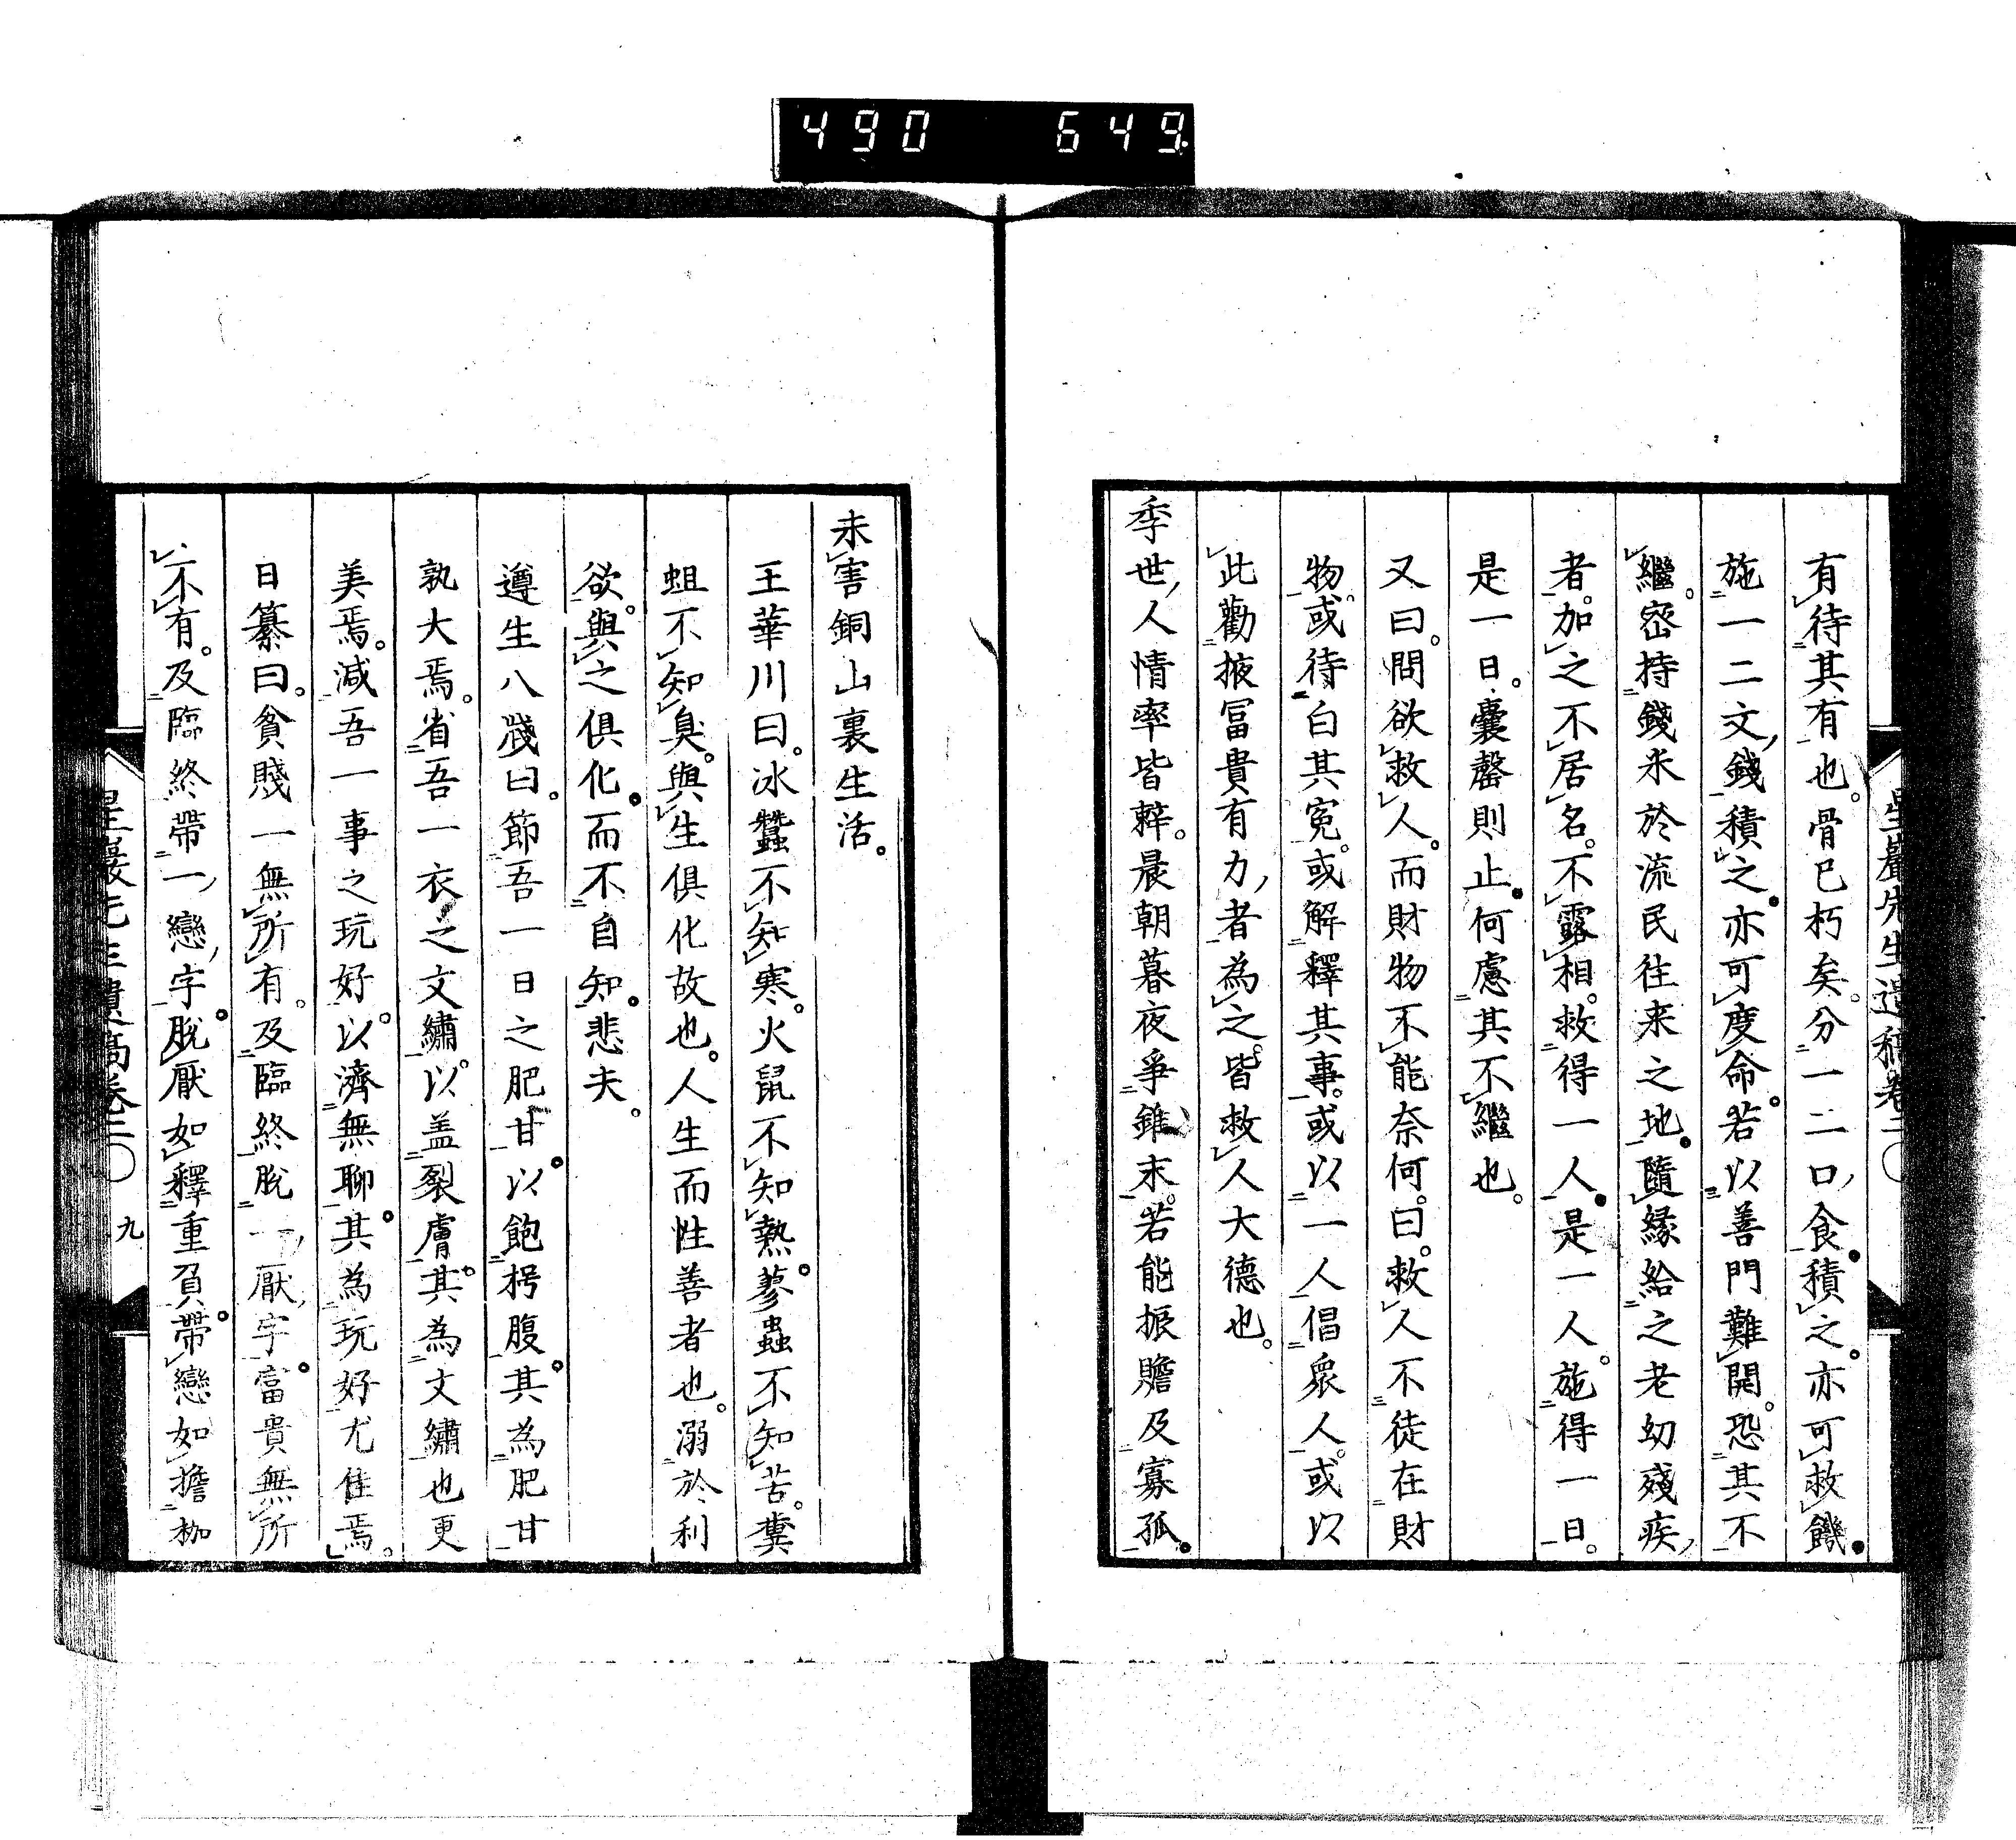 490 649
星巖先生遺稿卷二
有待其有也。骨已朽矣。分一二口食。積之。亦可救饑。
施一二文錢。積之。亦可度命。若以善門難開。恐其不
繼。密持錢米於流民往来之地。隨緣給之老幼殘疾
者。加之不居名。不露相。救得一人。是一人。施得一日。
是一日。囊罄則止。何慮其不繼也。
又曰。問欲救人。而財物不能奈何。曰。救人不徒在財
物。或待白其冤。或解釋其事。或以一人倡衆人。或以
此勸掖冨貴有力者為之。皆救人大德也。
季世人情率皆辢。晨朝暮夜爭錐末。若能振贍及寡孤。
未害銅山裏生活。
王華川曰。冰蠶不知寒。火鼠不知熱。蓼蟲不知苦。糞
蛆不知臭。與生俱化故也。人生而性善者也。溺於利
欲。與之俱化。而不自知。悲夫。
遵生八牋曰。節吾一日之肥甘。以飽枵腹。其為肥甘
孰大焉。省吾一衣之文繡。以盖裂膚。其為文繡也更
美焉。減吾一事之玩好。以濟無聊。其為玩好尤佳焉。
日纂曰。貧賤一無所有。及臨終脫一厭字。富貴無所
不有。及臨終帶一戀字。脫厭如釋重負。帶戀如擔枷
星巖先生遺稿卷二 九